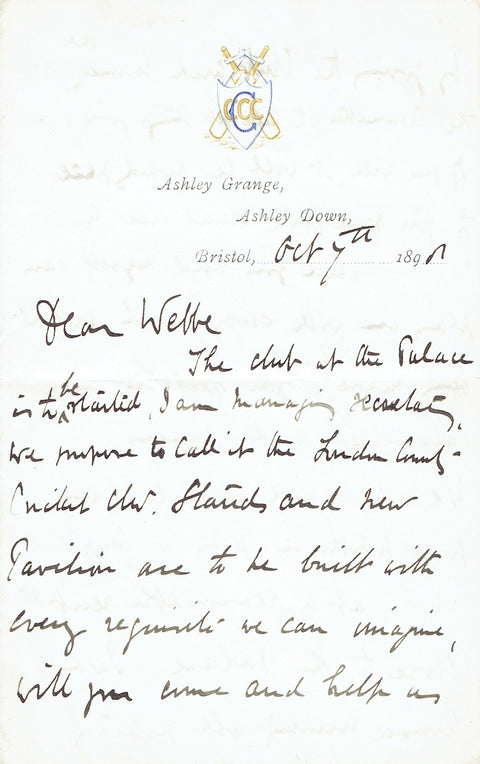 CCCC
Ashley Grange,
Ashley Down,
Bristol, Oct 7th 1898
Dear Webbe
The club at the Palace
is to be started, I am managing secretary,
we propose to call it the London County
Cricket Club. Stands and new
Pavilion are to be built with
every requisite we can imagine,
will you come and help us